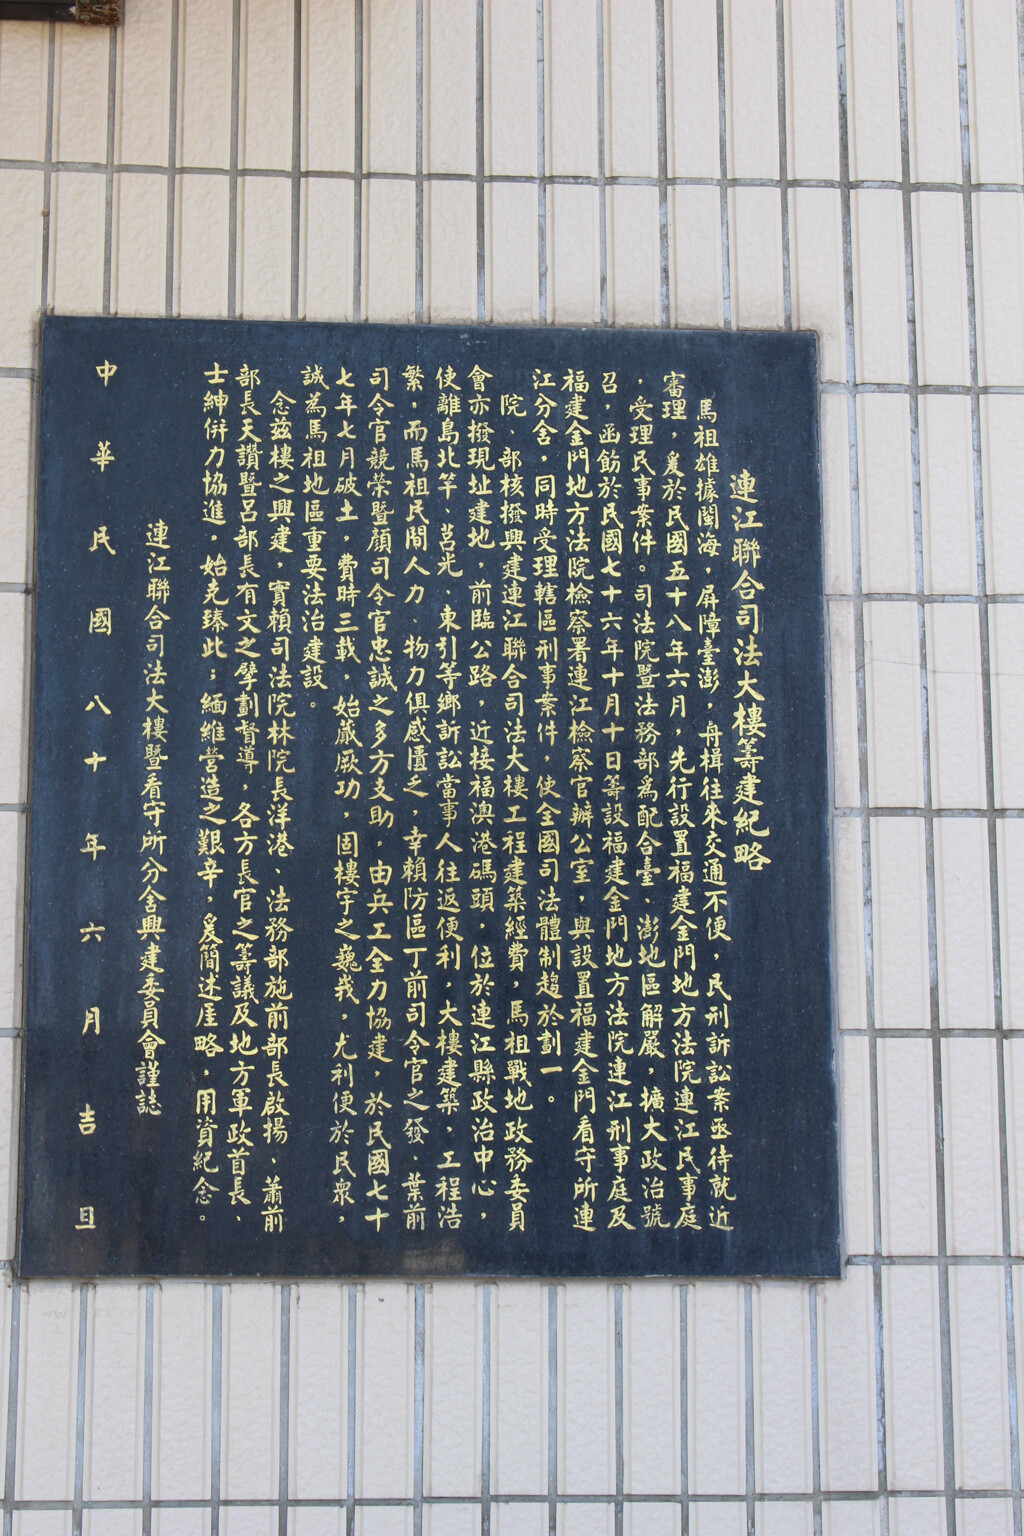 連江聯合司法大樓籌建紀略
馬祖雄據閩海，屏障臺澎，舟楫往來交通不便，民刑訴訟案亟待就近
審理，爰於民國五十八年六月，先行設置福建金門地方法院連江民事庭
，受理民事案件。司法院暨法務部為配合臺、澎地區解嚴，擴大政治號
召，函飭於民國七十六年十月十日籌設福建金門地方法院連江刑事庭及
福建金門地方法院檢察署連江檢察官辦公室，與設置福建金門看守所連
江分舍，同時受理轄區刑事案件，使全國司法體制趨於劃一。
院、部核撥興建連江聯合司法大樓工程建築經費，馬祖戰地政務委員
會亦撥現址建地，前臨公路，近接福澳港碼頭，位於連江縣政治中心，
使離島北竿、莒光、東引等鄉訴訟當事人往返便利，大樓建築，工程浩
繁，而馬祖民間人力、物力俱感匱乏，幸賴防區丁前司令官之發、葉前
司令官競榮暨顏司令官忠誠之多方支助，由兵工全力協建，於民國七十
七年七月破土，費時三載，始蕆厥功，固樓宇之巍峩，尤利便於民眾，
誠為馬祖地區重要法治建設。
念茲樓之興建，實賴司法院林院長洋港、法務部施前部長啟揚、蕭前
部長天讚暨呂部長有文之擘劃督導，各方長官之籌議及地方軍政首長、
士紳併力協進，始克臻此；緬維營造之艱辛，爰簡述厓略，用資紀念。
連江聯合司法大樓暨看守所分舍興建委員會謹誌
中華民國八十年六月吉旦